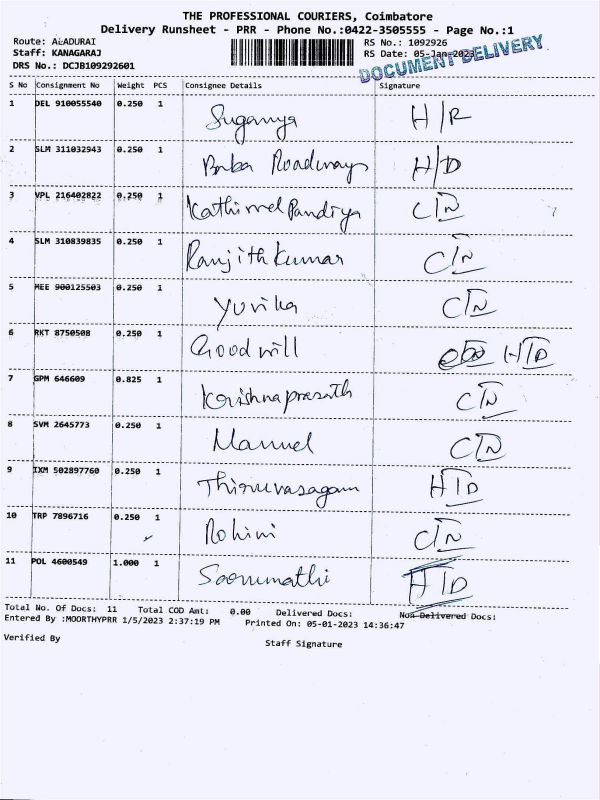 THE PROFESSIONAL COURIERS, Coimbatore
Delivery Runsheet - PRR - Phone No.:0422-3505555 - Page No.:1
Route: ALADURAI RS No.: 1092926
Staff: KANAGARAJ RS Date: 05-Jan-2023
DRS No.: DCJB109292601 DOCUMENT DELIVERY
S No Consignment No Weight PCS Consignee Details Signature
1 DEL 910055540 0.250 1 Suganya H/R
2 SLM 311032943 0.250 1 Baba Roadways H/D
3 VPL 216402822 0.250 1 Kathirvel Pandiya C/N
4 SLM 310839835 0.250 1 Ranjith Kumar C/N
5 MEE 900125503 0.250 1 Yuvika C/N
6 RKT 8750508 0.250 1 Good will H/D
7 GPM 646609 0.825 1 Krishna prasath C/N
8 SVM 2645773 0.250 1 Manuel C/N
9 IXM 502897760 0.250 1 Thiruvasagam H/D
10 TRP 7896716 0.250 1 Rohini C/N
11 POL 4600549 1.000 1 H/D
Total No. Of Docs: 11 Total COD Amt: 0.00 Delivered Docs: Non-Delivered Docs:
Entered By :MOORTHYPRR 1/5/2023 2:37:19 PM Printed On: 05-01-2023 14:36:47
Verified By Staff Signature